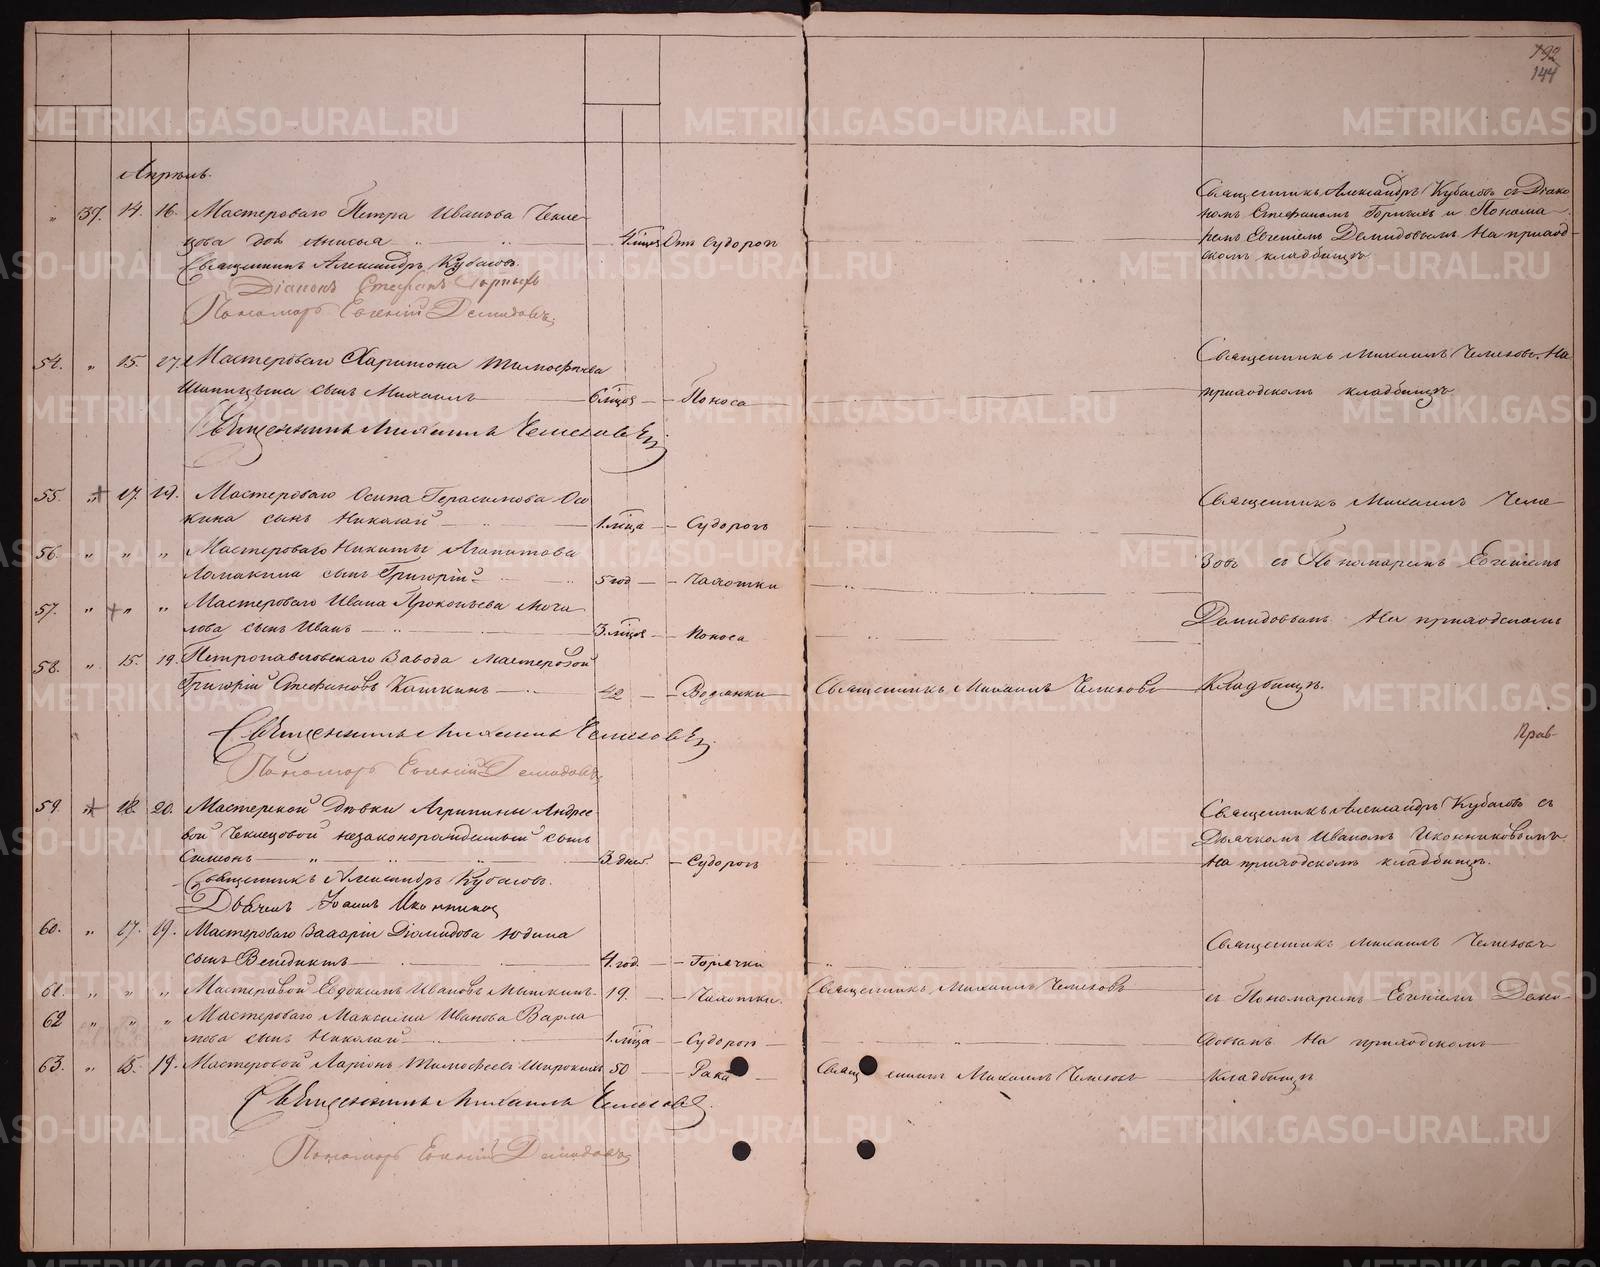 192
144
Апрѣль.
" 37. 14. 16. Мастероваго Петра Иванова Чекле-
цова дочь Анисья 4 мѣсяц. Отъ судорогъ
Священникъ Александръ Кубасовъ съ Діако-
номъ Стефаномъ Горныхъ и Понома-
ремъ Евгеніемъ Демидовымъ На приход-
скомъ кладбищѣ
Священникъ Александръ Кубасовъ.
Діаконъ Стефанъ Горныхъ
Пономарь Евгеній Демидовъ.
54. " 15. 17. Мастероваго Харитона Тимофѣева
Шипицына сынъ Михаилъ 6 мѣсяц. Поноса
Священникъ Михаилъ Чемезовъ. На
приходскомъ кладбищѣ
Священникъ Михаилъ Чемезовъ.
55. " 17. 19. Мастероваго Осипа Герасимова Ос-
кина сынъ Николай 1 мѣсяца Судорогъ
Священникъ Михаилъ Чеме-
56. " " " Мастероваго Никиты Агапитова
Ломакина сынъ Григорій 5 год. Чахотки
зовъ съ Пономаремъ Евгеніемъ
57. " " " Мастероваго Ивана Прокопьева
сынъ Иванъ 3 мѣсяц. Поноса
Демидовымъ На приходскомъ
58. " 15. 19. Петропавловскаго Завода Мастеровой
Григорій Стефановъ Кашкинъ 42 Водянки Священникъ Михаилъ Чемезовъ Кладбищѣ.
Священникъ Михаилъ Чемезовъ.
Пономарь Евгеній Демидовъ
59. " 18. 20. Мастерской дѣвки Агрипины Андрее-
вой Чеклецовой незаконорожденный сынъ
Симеонъ 3 дней Судорогъ
Священникъ Александръ Кубасовъ съ
Дьячкомъ Иваномъ Иконниковымъ
На приходскомъ кладбищѣ.
Священникъ Александръ Кубасовъ.
Дьячекъ Іоаннъ Иконниковъ
60. " 17. 19. Мастероваго Захарія Діомидова Юдина
сынъ Венедиктъ 4 год. Горячки
Священникъ Михаилъ Чемезовъ
61. " " " Мастеровой Евдокимъ Ивановъ Мышкинъ 19. Чахотки. Священникъ Михаилъ Чемезовъ
съ Пономаремъ Евгеніемъ Деми-
62 " " " Мастероваго Максима Иванова Варла-
мова сынъ Николай 1 мѣсяца Судорогъ
довымъ На приходскомъ
63. " 15. 19. Мастеровой Ларіонъ Тимофеевъ Широкихъ 50 Рака Священникъ Михаилъ Чемезовъ Кладбищѣ
Священникъ Михаилъ Чемезовъ.
Пономарь Евгеній Демидовъ
METRIKI.GASO-URAL.RU